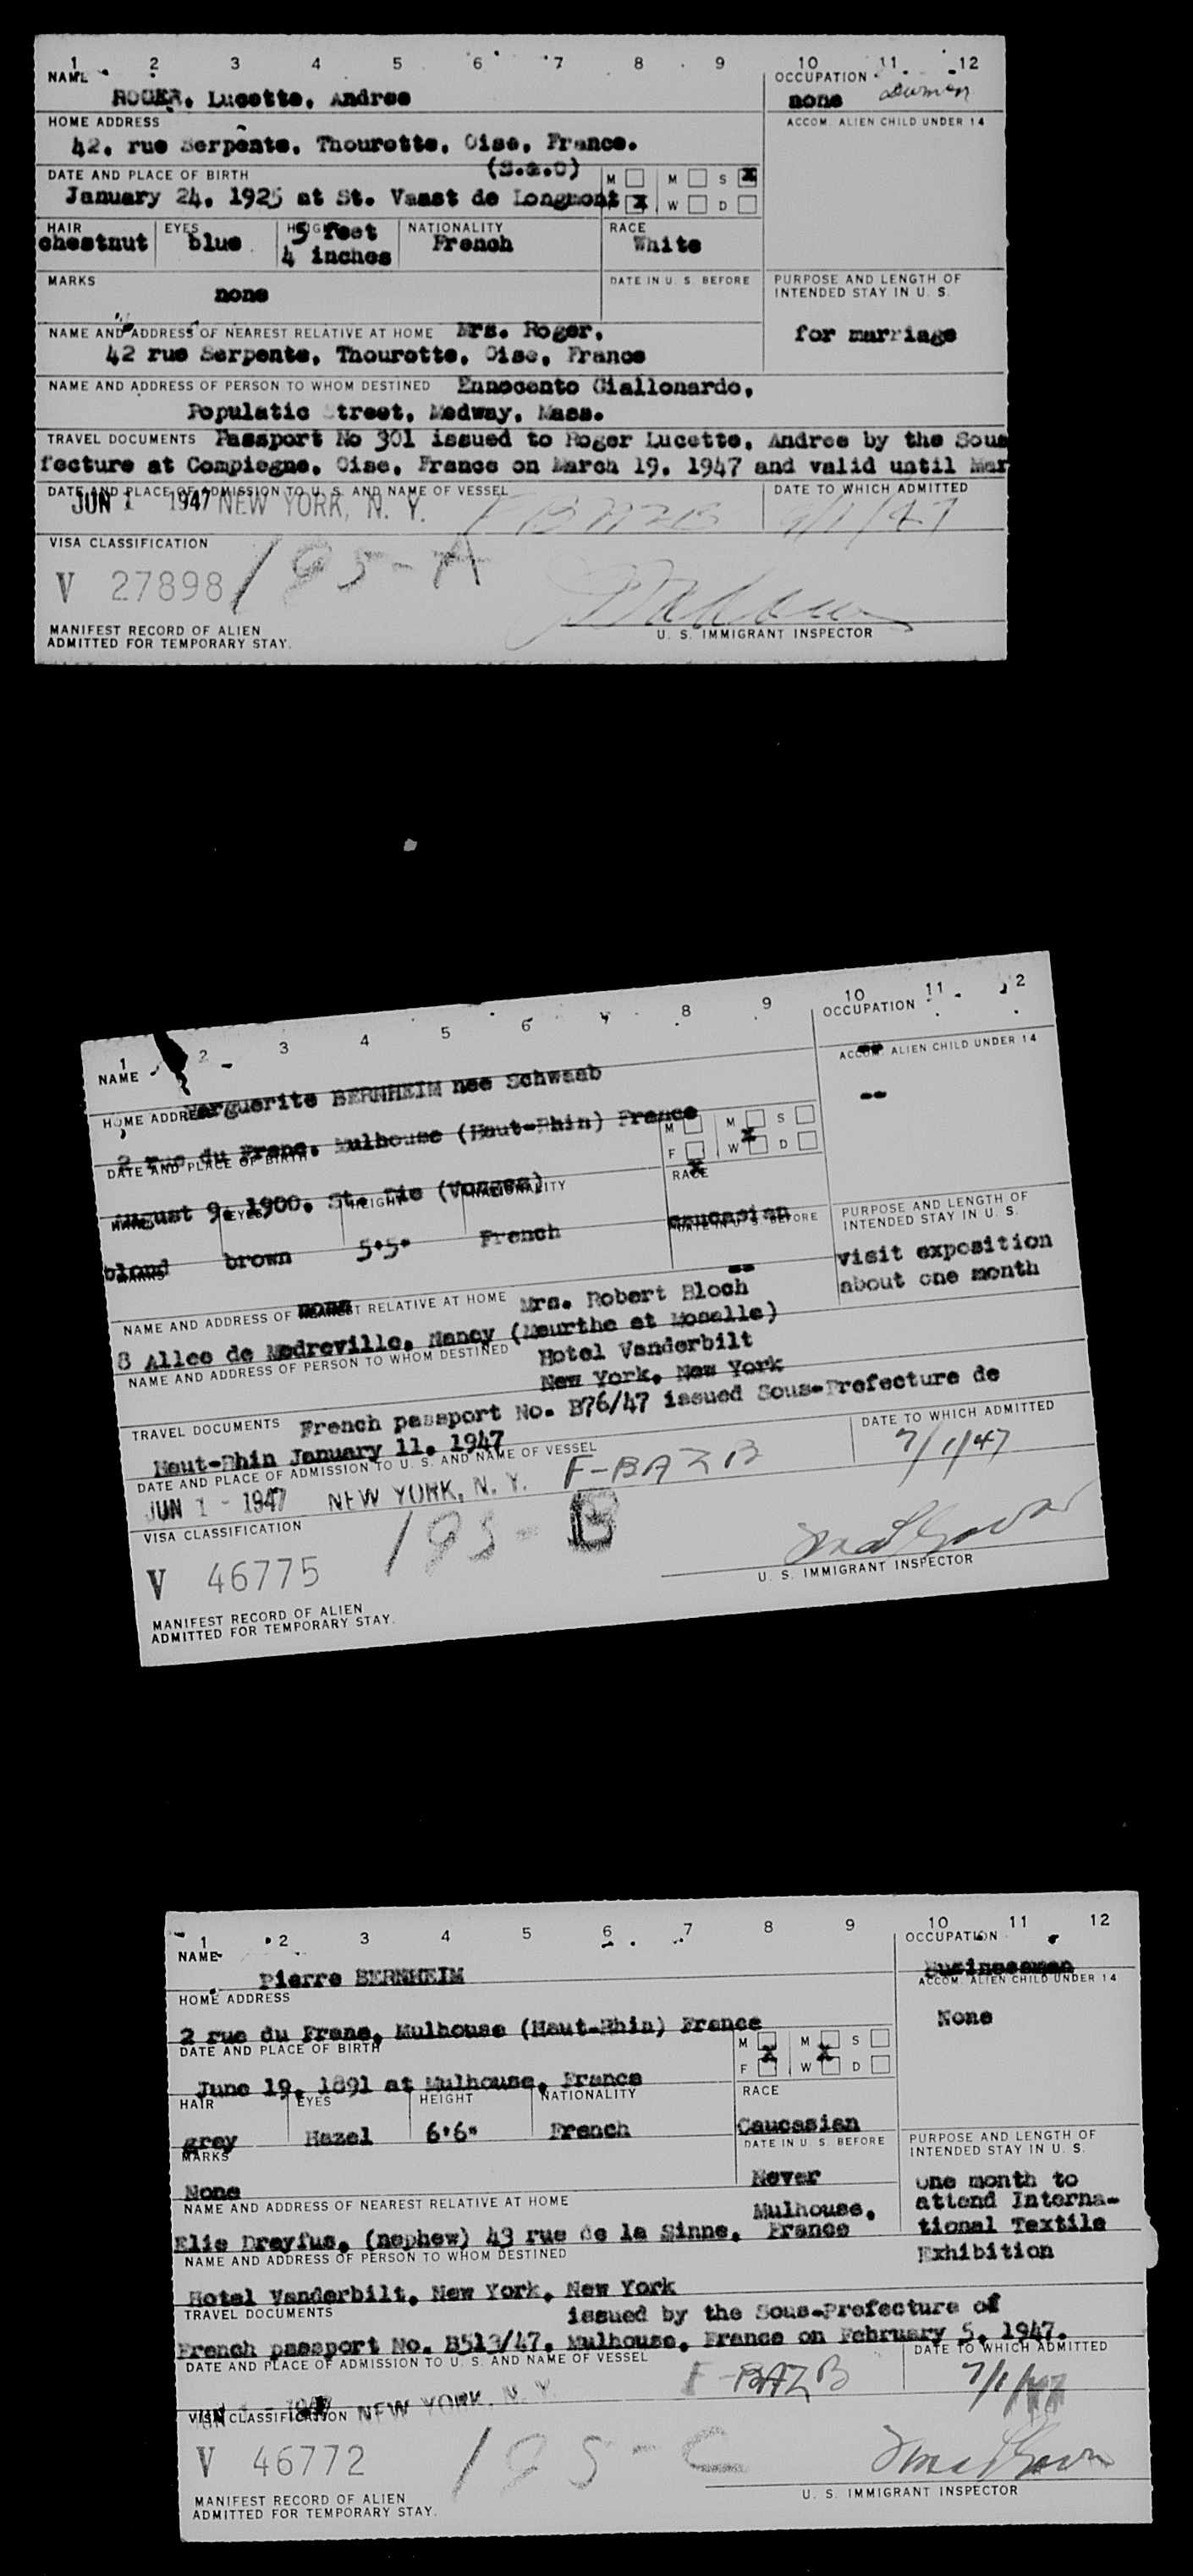 1 2 3 4 5 6 7 8 9 10 11 12
NAME OCCUPATION
ROGER, Lucette, Andree none
HOME ADDRESS ACCOM. ALIEN CHILD UNDER 14
42, rue Serpente, Thourotte, Oise, France.
DATE AND PLACE OF BIRTH (S.&.O) M M S X
January 24, 1925 at St. Vaast de Longmont X W D
HAIR EYES HEIGHT NATIONALITY RACE
chestnut blue 5 feet French White
4 inches
MARKS DATE IN U. S. BEFORE PURPOSE AND LENGTH OF
INTENDED STAY IN U. S.
none
NAME AND ADDRESS OF NEAREST RELATIVE AT HOME Mrs. Roger, for marriage
42 rue Serpente, Thourotte, Oise, France
NAME AND ADDRESS OF PERSON TO WHOM DESTINED Ennocento Giallonardo,
Populatic Street, Medway, Mass.
TRAVEL DOCUMENTS Passport No 301 issued to Roger Lucette, Andree by the Sous
fecture at Compiegne, Oise, France on March 19, 1947 and valid until Mar
DATE AND PLACE OF ADMISSION TO U. S. AND NAME OF VESSEL DATE TO WHICH ADMITTED
JUN 1 1947 NEW YORK, N. Y. F BAZB 7/1/47
VISA CLASSIFICATION
V 27898 195-A
MANIFEST RECORD OF ALIEN U. S. IMMIGRANT INSPECTOR
ADMITTED FOR TEMPORARY STAY.
1 2 3 4 5 6 7 8 9 10 11 12
NAME OCCUPATION
Marguerite BERNHEIM nee Schwaab --
HOME ADDRESS ACCOM. ALIEN CHILD UNDER 14
2 rue du Frene, Mulhouse (Haut-Rhin) France --
DATE AND PLACE OF BIRTH M M S
F X W X D
August 9, 1900, St. Die (Vosges)
HAIR EYES HEIGHT NATIONALITY RACE
blond brown 5'5" French caucasian
MARKS DATE IN U. S. BEFORE PURPOSE AND LENGTH OF
INTENDED STAY IN U. S.
none -- visit exposition
about one month
NAME AND ADDRESS OF NEAREST RELATIVE AT HOME Mrs. Robert Bloch
8 Allee de Medreville, Nancy (Meurthe et Moselle)
NAME AND ADDRESS OF PERSON TO WHOM DESTINED Hotel Vanderbilt
New York, New York
TRAVEL DOCUMENTS French passport No. B76/47 issued Sous-Prefecture de
Haut-Rhin January 11, 1947
DATE AND PLACE OF ADMISSION TO U. S. AND NAME OF VESSEL DATE TO WHICH ADMITTED
JUN 1 - 1947 NEW YORK, N. Y. F-BAZB 7/1/47
VISA CLASSIFICATION
V 46775 195-B
MANIFEST RECORD OF ALIEN U. S. IMMIGRANT INSPECTOR
ADMITTED FOR TEMPORARY STAY.
1 2 3 4 5 6 7 8 9 10 11 12
NAME OCCUPATION
Pierre BERNHEIM Businessman
HOME ADDRESS ACCOM. ALIEN CHILD UNDER 14
2 rue du Frene, Mulhouse (Haut-Rhin) France None
DATE AND PLACE OF BIRTH M X M X S
F W D
June 19, 1891 at Mulhouse, France
HAIR EYES HEIGHT NATIONALITY RACE
grey Hazel 6'6" French Caucasian
MARKS DATE IN U. S. BEFORE PURPOSE AND LENGTH OF
INTENDED STAY IN U. S.
None Never one month to
NAME AND ADDRESS OF NEAREST RELATIVE AT HOME Mulhouse, attend Interna-
Elie Dreyfus, (nephew) 43 rue de la Sinne, France tional Textile
NAME AND ADDRESS OF PERSON TO WHOM DESTINED Exhibition
Hotel Vanderbilt, New York, New York
TRAVEL DOCUMENTS issued by the Sous-Prefecture of
French passport No. B513/47, Mulhouse, France on February 5, 1947.
DATE AND PLACE OF ADMISSION TO U. S. AND NAME OF VESSEL DATE TO WHICH ADMITTED
JUN 1 - 1947 NEW YORK, N. Y. F-BAZB 7/1/47
VISA CLASSIFICATION
V 46772 195-C
MANIFEST RECORD OF ALIEN U. S. IMMIGRANT INSPECTOR
ADMITTED FOR TEMPORARY STAY.